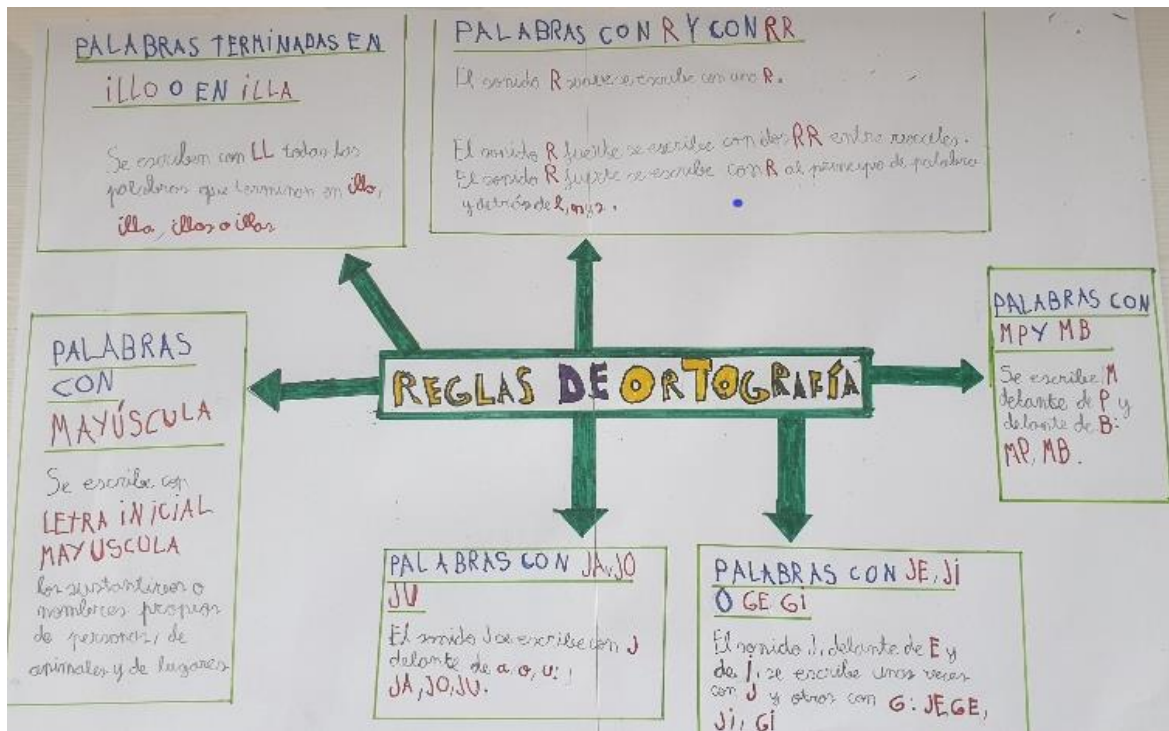 PALABRAS TERMINADAS EN
iLLO O EN iLLA
Se escriben con LL todas las
palabras que terminan en illo,
illa, illos o illas
PALABRAS CON R Y CON RR
El sonido R suave se escribe con una R.
El sonido R fuerte se escribe con dos RR entre vocales.
El sonido R fuerte se escribe con R al principio de palabra
y detrás de l, n y s.
PALABRAS
CON
MAYÚSCULA
Se escribe con
LETRA iNiCIAL
MAYUSCULA
los sustantivos o
nombres propios
de personas, de
animales y de lugares
REGLAS DE ORTOGRAFÍA
PALABRAS CON
MP Y MB
Se escribe M
delante de P y
delante de B:
MP, MB.
PALABRAS CON JA, JO
JU
El sonido J se escribe con J
delante de a, o, u:
JA, JO, JU.
PALABRAS CON JE, Ji
O GE Gi
El sonido J, delante de E y
de i, se escribe unas veces
con J y otras con G: JE, GE,
Ji, Gi